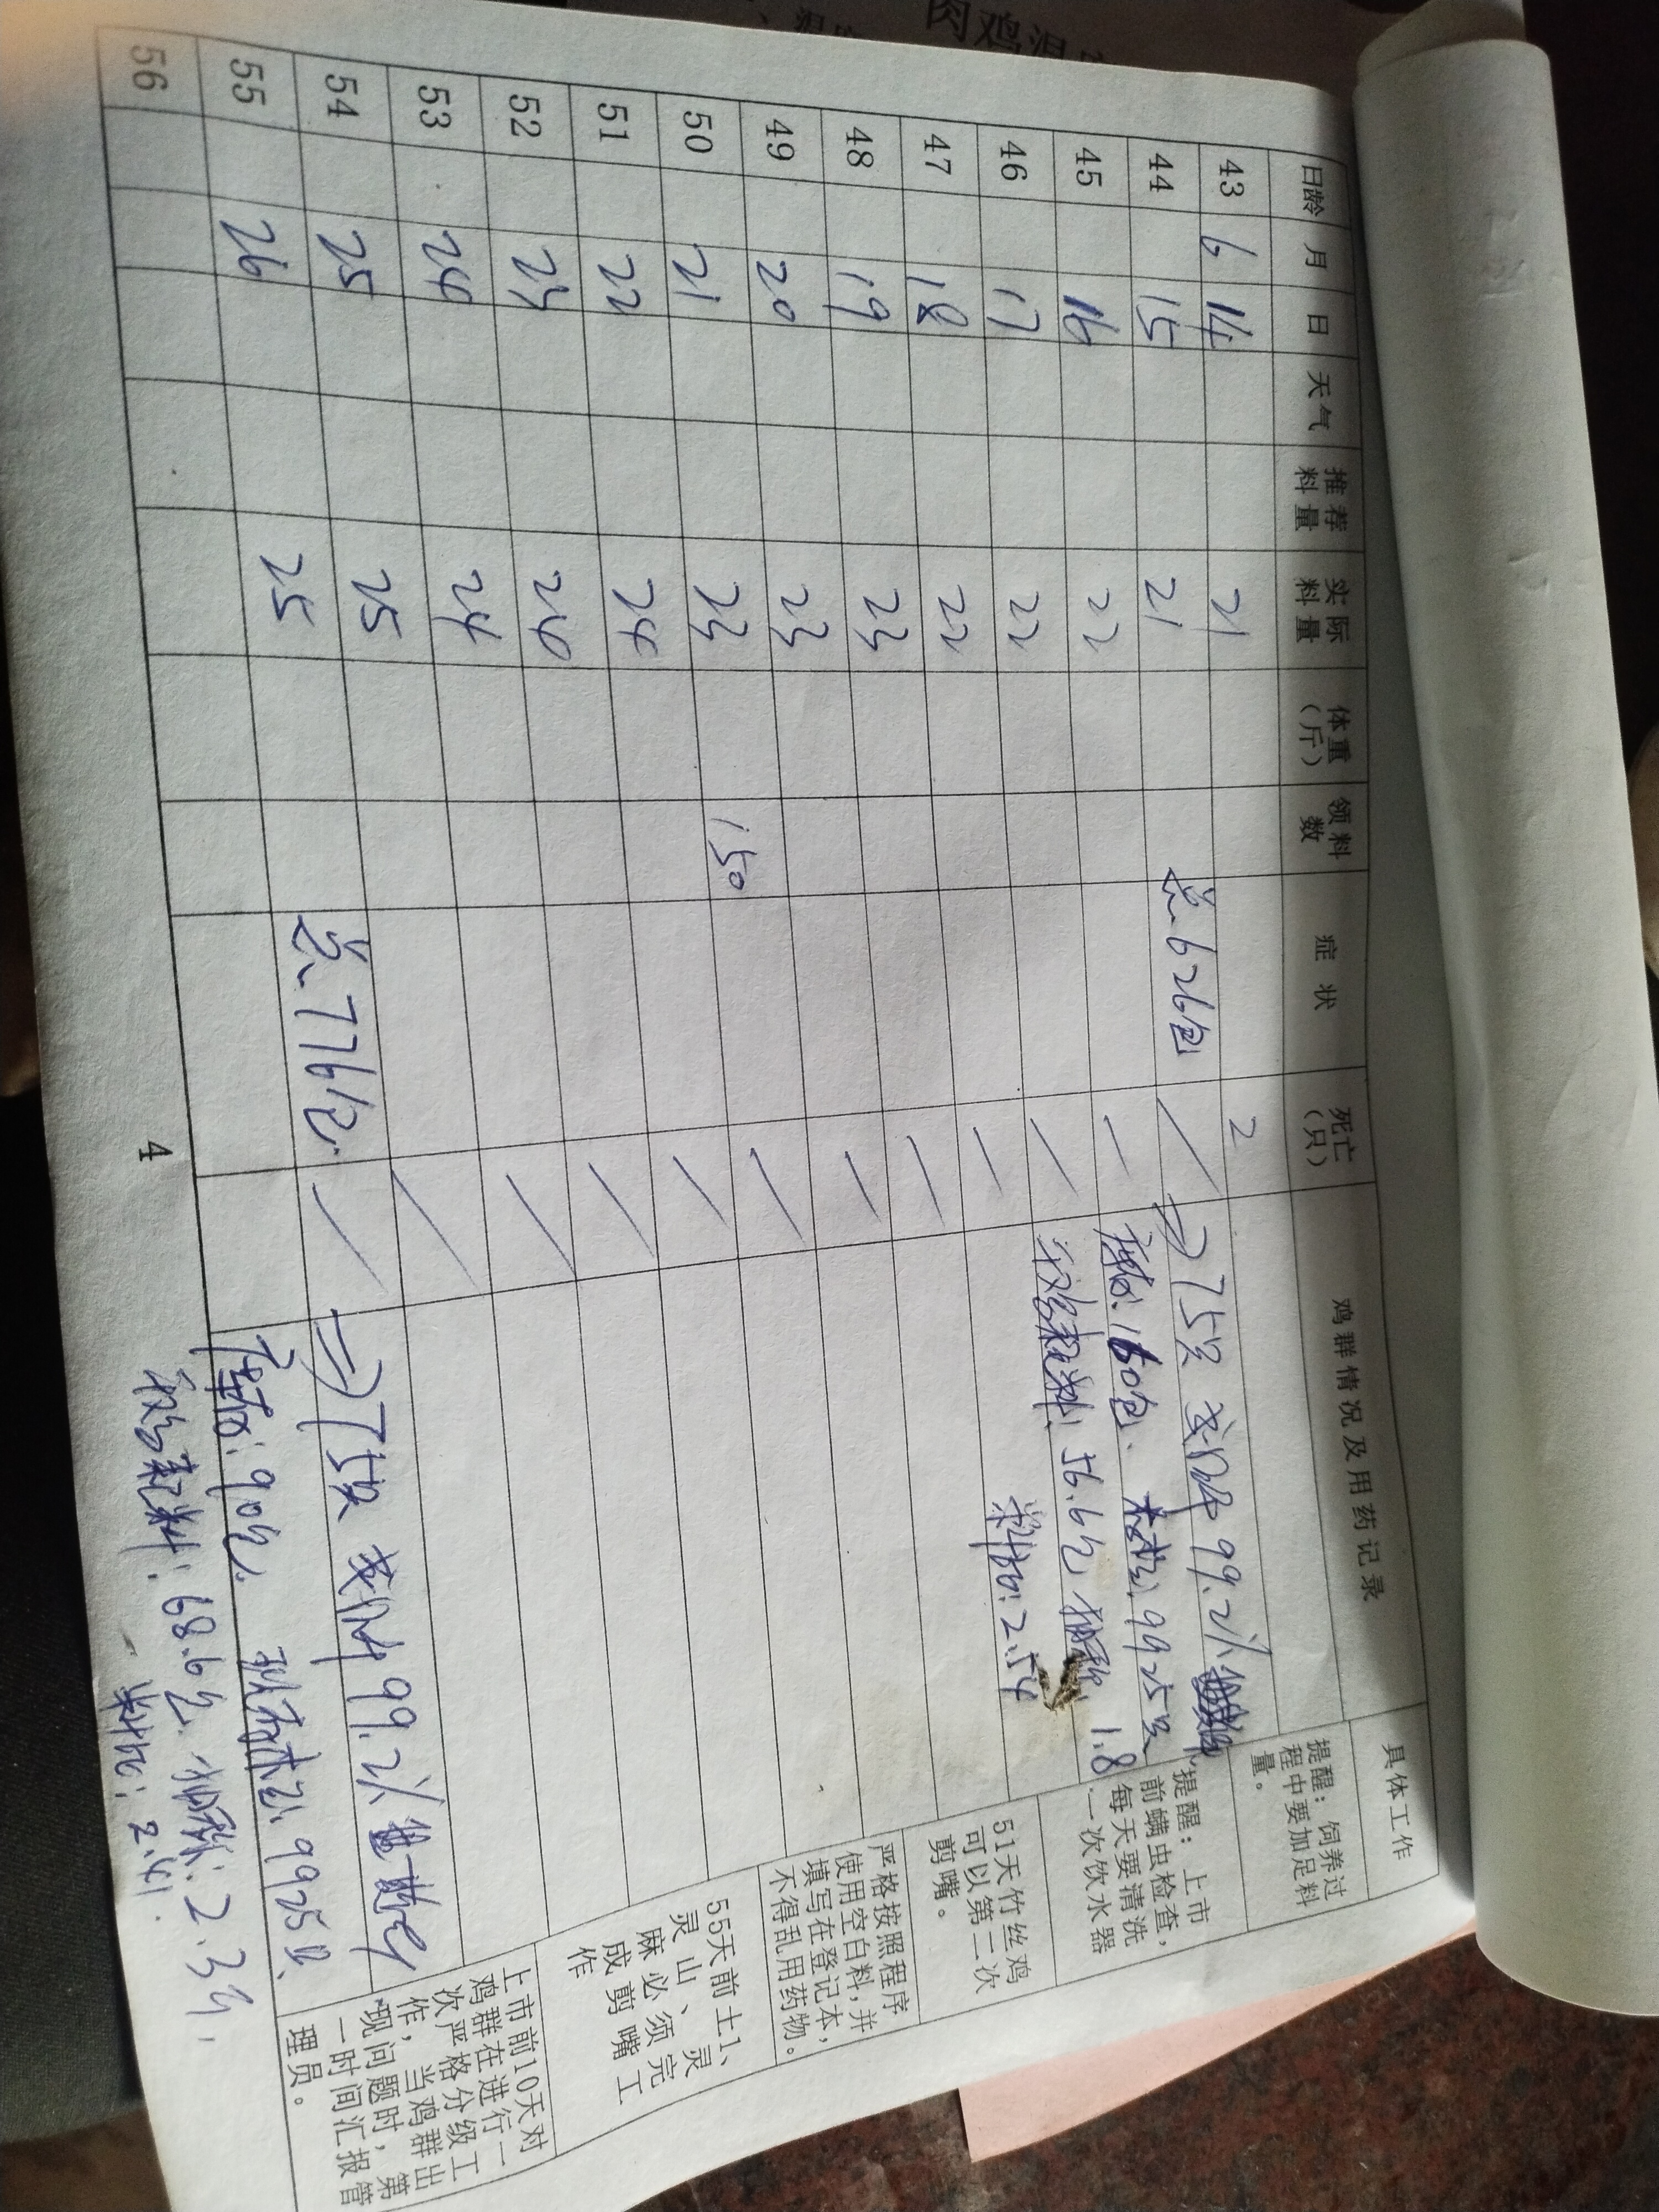 肉鸡温
日龄 月 日 天气 推荐料量 实际料量 体重(斤) 领料数 症状 死亡(只) 鸡群情况及用药记录 具体工作
43 6 14 21 2
44 15 21 总.626包 / →75只 成活率 99.2%
45 16 22 / 库存:160包. 存栏:9925只
46 17 22 / 千鸡耗料:56.6包 抽称:1.8
47 18 22 / 料比:2.54
48 19 23 /
49 20 23 /
50 21 23 150 /
51 22 24 /
52 23 24 /
53 24 24 /
54 25 25 总.776包. / →75只 成活率 99.2%
55 26 25 库存:90包. 现存栏:9925只.
56 千鸡耗料:68.6包. 抽称:2.3斤.
料比:2.41.
提醒:饲养过
程中要加足料
量。
提醒:上市
前螨虫检查,
每天要清洗
一次饮水器
51天竹丝鸡
可以第二次
剪嘴。
严格按照程序
使用空白料,并
填写在登记本,
不得乱用药物。
55天前土1、
灵山、灵
麻必须完
成剪嘴工
作
上市前10天对
鸡群在进行一
次严格分级工
作,当鸡群出
现问题时,第
一时间汇报管
理员。
4